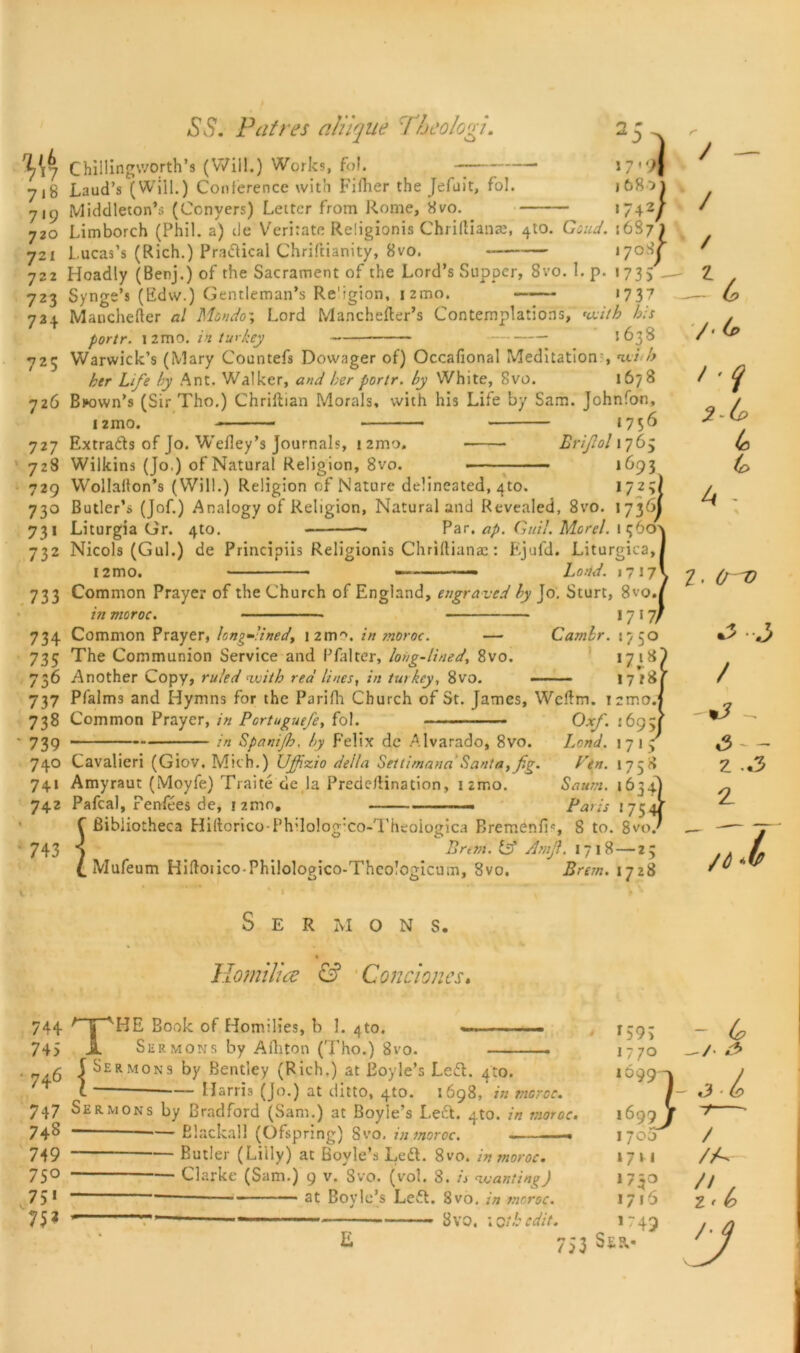 SS. Patres aliique Theologi. 25
717 Chillingworth's (Will.) Works, fol. ——— 1719
718 Laud's (Will.) Conference with Fiſher the Jeſuit, fol. 1680
719 Middleton's (Conyers) Letter from Rome, 8vo. —— 1742
720 Limborch (Phil. a) de Veritate Religionis Chriſtianæ, 4to. Goud. 1687
721 Lucas's (Rich.) Practical Chriſtianity, 8vo. ——— 1708
722 Hoadly (Benj.) of the Sacrament of the Lord's Supper, 8vo. l. p. 1735
723 Synge's (Edw.) Gentleman's Religion, 12mo. —— 1737
724 Mancheſter al Mondo; Lord Mancheſter's Contemplations, with his
portr. 12mo. in turkey ——— —— 1638
725 Warwick's (Mary Counteſs Dowager of) Occaſional Meditations, with
her Life by Ant. Walker, and her portr. by White, 8vo. 1678
726 Brown's (Sir Tho.) Chriſtian Morals, with his Life by Sam. Johnſon,
12mo. —— —— —— 1756
727 Extracts of Jo. Weſley's Journals, 12mo. —— Briſtol 1765
728 Wilkins (Jo.) of Natural Religion, 8vo. ——— 1693
729 Wollaſton's (Will.) Religion of Nature delineated, 4to. 1725
730 Butler's (Joſ.) Analogy of Religion, Natural and Revealed, 8vo. 1736
731 Liturgia Gr. 4to. ——— Par. ap. Guil. Morel. 1560
732 Nicols (Gul.) de Principiis Religionis Chriſtianæ: Ejuſd. Liturgica,
12mo. ——— ——— Lond. 1717
733 Common Prayer of the Church of England, engraved by Jo. Sturt, 8vo.
in moroc. ——— ——— 1717
734 Common Prayer, long-lined, 12mo. in moroc. — Cambr. 1750
735 The Communion Service and Pſalter, long-lined, 8vo. 1718
736 Another Copy, ruled with red lines, in turkey, 8vo. —— 1718
737 Pſalms and Hymns for the Pariſh Church of St. James, Weſtm. 12mo.
738 Common Prayer, in Portugueſe, fol. ——— Oxf. 1695
739 ——— in Spaniſh. by Felix de Alvarado, 8vo. Lond. 1715
740 Cavalieri (Giov. Mich.) Uffizio della Settimana Santa, fig. Ven. 1758
741 Amyraut (Moyſe) Traité de la Predeſtination, 12mo. Saum. 1634
742 Paſcal, Penſées de, 12mo. ——— Paris 1754
743 { Bibliotheca Hiſtorico-Philologico-Theologica Bremenſis, 8 to. 8vo.
Brem. & Amſt. 1718—25
Muſeum Hiſtorico-Philologico-Theologicum, 8vo. Brem. 1728
SERMONS.
Homiliæ & Conciones.
744 THE Book of Homilies, b l. 4to. ——— 1595
745 SERMONS by Aſhton (Tho.) 8vo. ——— 1770
746 { SERMONS by Bentley (Rich.) at Boyle's Lect. 4to. 1699
——— Harris (Jo.) at ditto, 4to. 1698, in moroc.
747 SERMONS by Bradford (Sam.) at Boyle's Lect. 4to. in moroc. 1699
748 ——— Blackall (Ofspring) 8vo. in moroc. ——— 1706
749 ——— Butler (Lilly) at Boyle's Lect. 8vo. in moroc. 1711
750 ——— Clarke (Sam.) 9 v. 8vo. (vol. 8. is wanting) 1730
751 ——— at Boyle's Lect. 8vo. in moroc. 1716
752 ——— 8vo. 10th edit. 1749
E 753 SER-